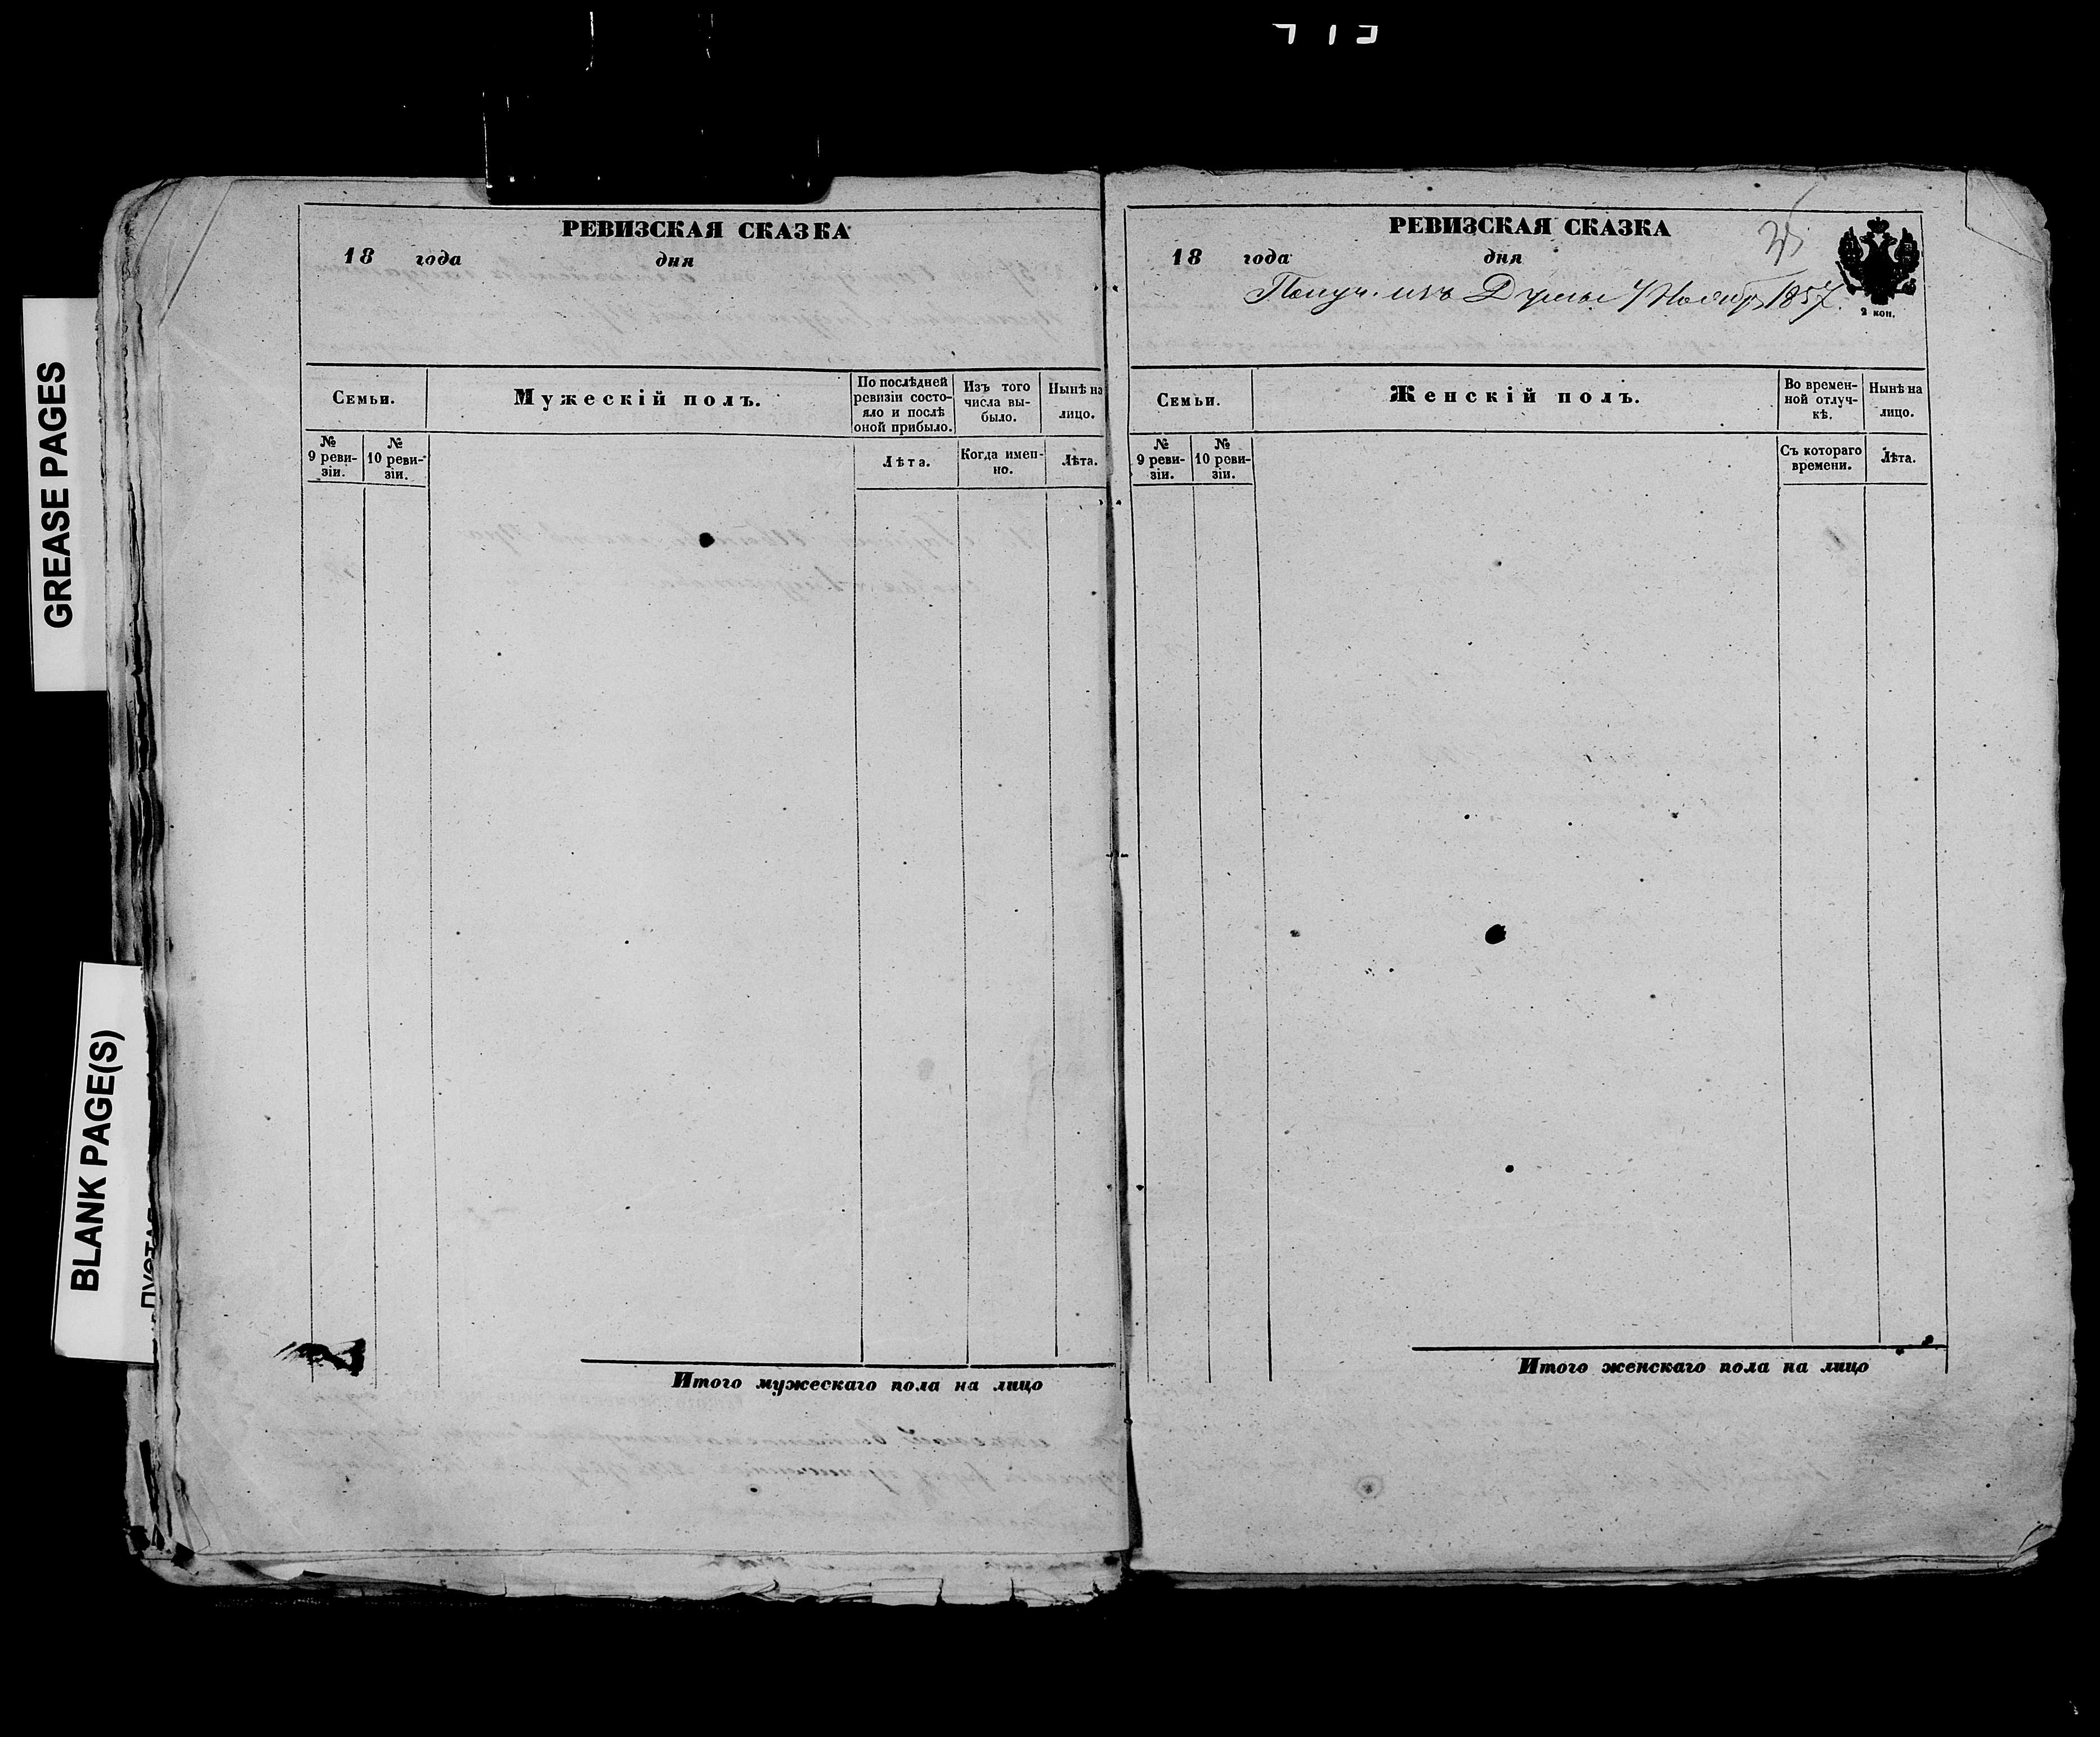 GREASE PAGES
BLANK PAGE(S)
РЕВИЗСКАЯ СКАЗКА
18 года дня
Семьи.
Мужескій полъ.
По послѣдней
ревизіи состо-
яло и послѣ
оной прибыло.
Изъ того
числа вы-
было.
Нынѣ на
лицо.
№
9 реви-
зіи.
№
10 реви-
зіи.
Лѣта.
Когда имен-
но.
Лѣта.
Итого мужескаго пола на лицо
РЕВИЗСКАЯ СКАЗКА
18 года дня
Получ. изъ Думы 7 Ноября 1857.
2 коп.
Семьи.
Женскій полъ.
Во времен-
ной отлуч-
кѣ.
Нынѣ на
лицо.
№
9 реви-
зіи.
№
10 реви-
зіи.
Съ котораго
времени.
Лѣта.
Итого женскаго пола на лицо